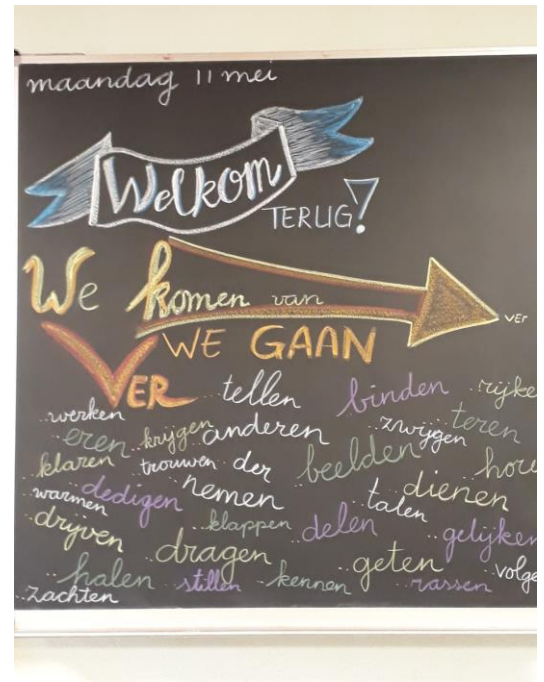 maandag 11 mei
Welkom
TERUG!
We komen van ver
WE GAAN
VER ...tellen ...binden ...rijke
...werken ...eren ...krijgen ...anderen ...zwijgen ...teren
...klaren ...trouwen ...der ...beelden ...hou
...warmen ...dedigen ...nemen ...talen ...dienen
...drijven ...klappen ...delen ...gelijken
...dragen ...geten ...volge
...halen ...stillen ...kennen ...rassen
...zachten